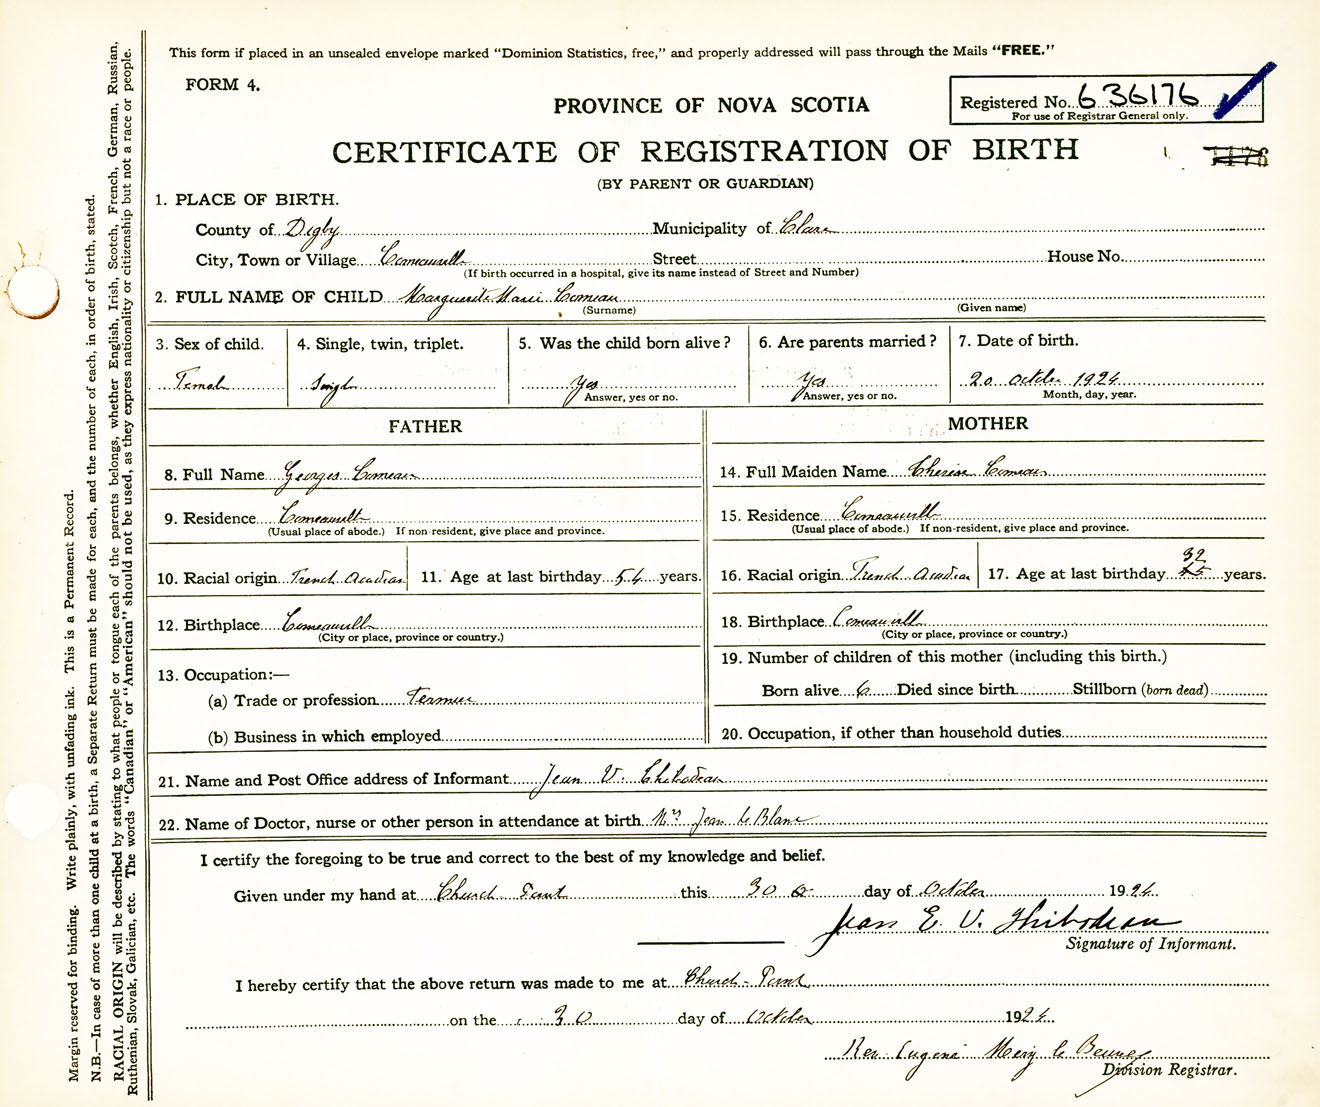 This form if placed in an unsealed envelope marked "Dominion Statistics, free," and properly addressed will pass through the Mails "FREE."
FORM 4.
Registered No. 636176
For use of Registrar General only.
PROVINCE OF NOVA SCOTIA
CERTIFICATE OF REGISTRATION OF BIRTH
(BY PARENT OR GUARDIAN)
1. PLACE OF BIRTH.
County of Digby Municipality of Clare
City, Town or Village Comeauville Street House No.
(If birth occurred in a hospital, give its name instead of Street and Number)
2. FULL NAME OF CHILD Marguerite Marie Comeau
(Surname) (Given name)
3. Sex of child. 4. Single, twin, triplet. 5. Was the child born alive? 6. Are parents married? 7. Date of birth.
Female Single Yes Yes 20 October 1924
Answer, yes or no. Answer, yes or no. Month, day, year.
FATHER
8. Full Name Georges Comeau
9. Residence Comeauville
(Usual place of abode.) If non-resident, give place and province.
10. Racial origin French Acadian 11. Age at last birthday 54 years.
12. Birthplace Comeauville
(City or place, province or country.)
13. Occupation:—
(a) Trade or profession Farmer
(b) Business in which employed
MOTHER
14. Full Maiden Name Therese Comeau
15. Residence Comeauville
(Usual place of abode.) If non-resident, give place and province.
32
16. Racial origin French Acadian 17. Age at last birthday years.
18. Birthplace Comeauville
(City or place, province or country.)
19. Number of children of this mother (including this birth.)
Born alive 6 Died since birth Stillborn (born dead)
20. Occupation, if other than household duties
21. Name and Post Office address of Informant Jean V. Thibodeau
22. Name of Doctor, nurse or other person in attendance at birth Mrs Jean Le Blanc
I certify the foregoing to be true and correct to the best of my knowledge and belief.
Given under my hand at Church Point this 30 day of October 1924
Jean E. V. Thibodeau
Signature of Informant.
I hereby certify that the above return was made to me at Church-Point
on the 30 day of October 1924
Rev. Eugene Mery Le
Division Registrar.
Margin reserved for binding. Write plainly, with unfading ink. This is a Permanent Record.
N.B.—In case of more than one child at a birth, a Separate Return must be made for each, and the number of each, in order of birth, stated.
RACIAL ORIGIN will be described by stating to what people or tongue each of the parents belongs, whether English, Irish, Scotch, French, German, Russian,
Ruthenian, Slovak, Galician, etc. The words "Canadian" or "American" should not be used, as they express nationality or citizenship but not a race or people.